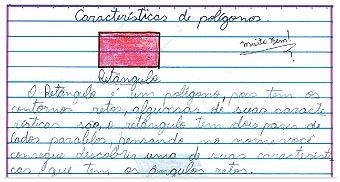 Características de polígonos.
muito bem!
Retângulo
O Retângulo é um polígono, pois tem os
contornos retos, algumas de suas caracte
rísticas são, o retângulo tem dois pares de
lados paralelos, pensando no nome você
consegue descobrir uma de suas característi
cas, que tem os ângulos retos.